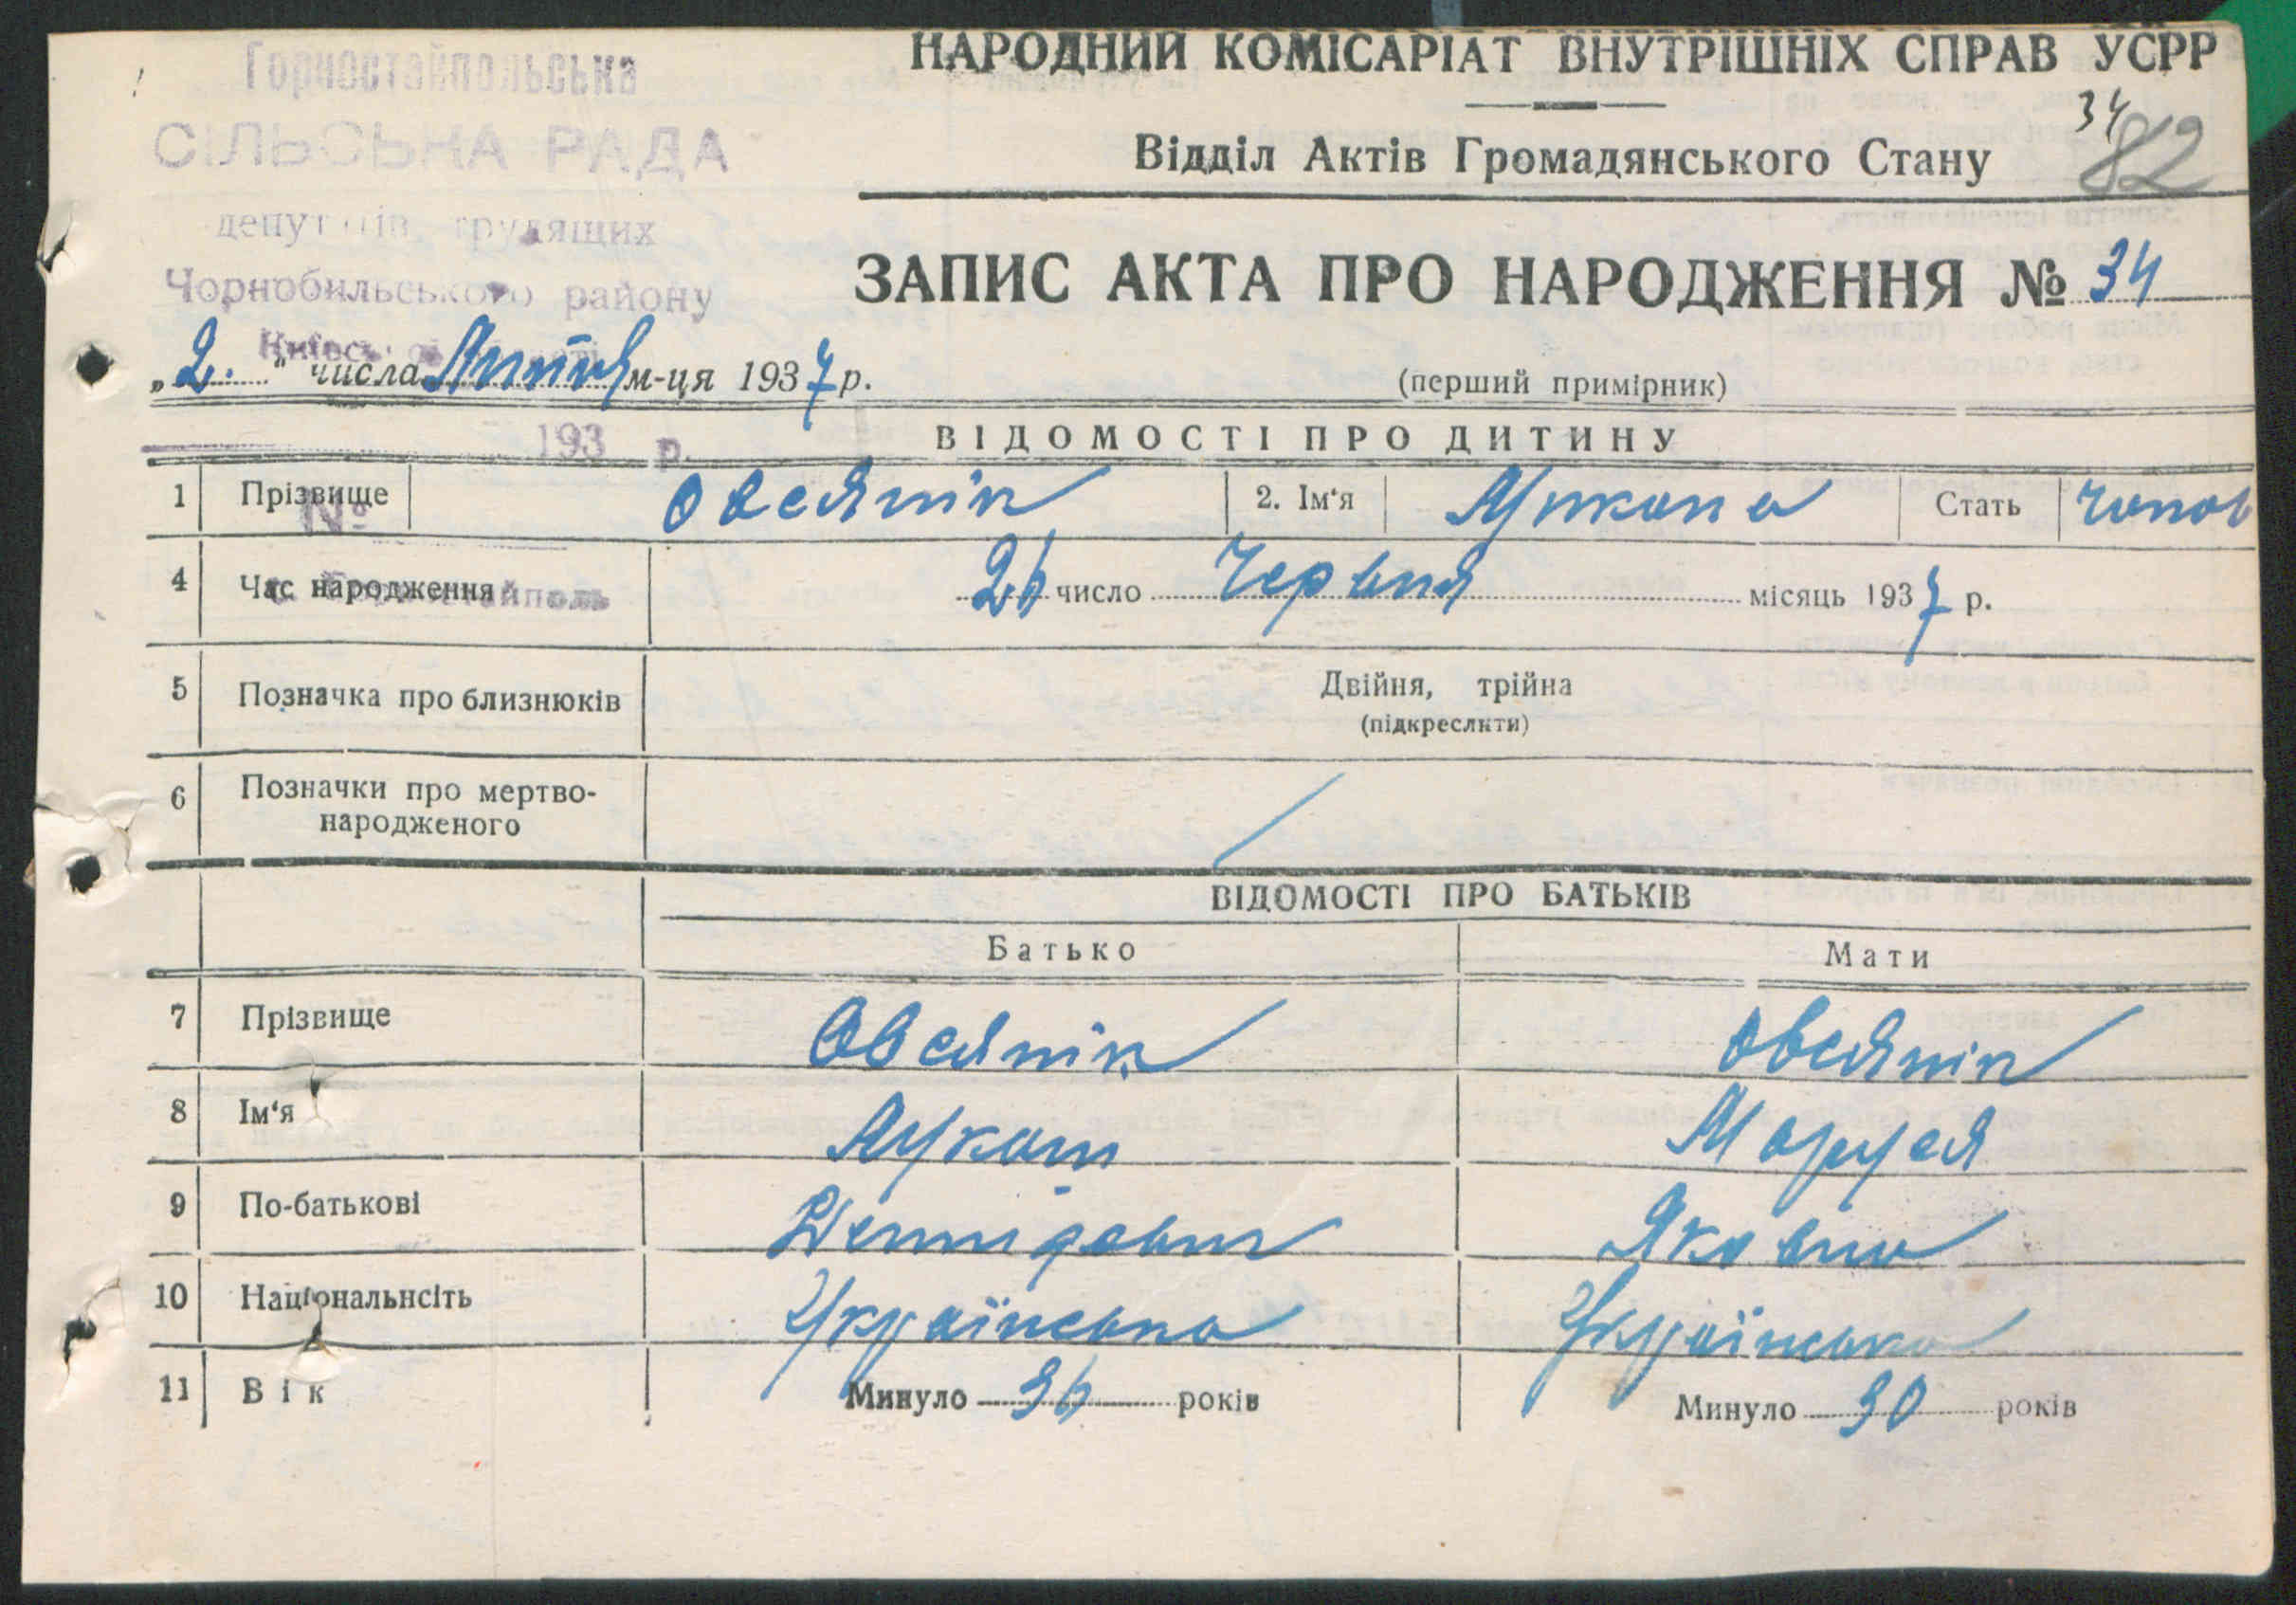 Горностайпольська
СІЛЬСЬКА РАДА
депутатів трудящих
Чорнобильського району
НАРОДНИЙ КОМІСАРІАТ ВНУТРІШНІХ СПРАВ УСРР
34
82
Відділ Актів Громадянського Стану
ЗАПИС АКТА ПРО НАРОДЖЕННЯ № 34
„2.“ числа Липня м-ця 1937 р.
(перший примірник)
193 р.
ВІДОМОСТІ ПРО ДИТИНУ
1 Прізвище Овсянік 2. Ім‘я Микола Стать чолов
№
4 Час народження 26 число Червня місяць 1937 р.
5 Позначка про близнюків Двійня, трійна
(підкреслити)
6 Позначки про мертво-
народженого
ВІДОМОСТІ ПРО БАТЬКІВ
Батько Мати
7 Прізвище Овсянік Овсянік
8 Ім‘я Лукаш Маруся
9 По-батькові Демидович Яковна
10 Національнсіть Українська Українська
11 Вік Минуло 36 років Минуло 30 років